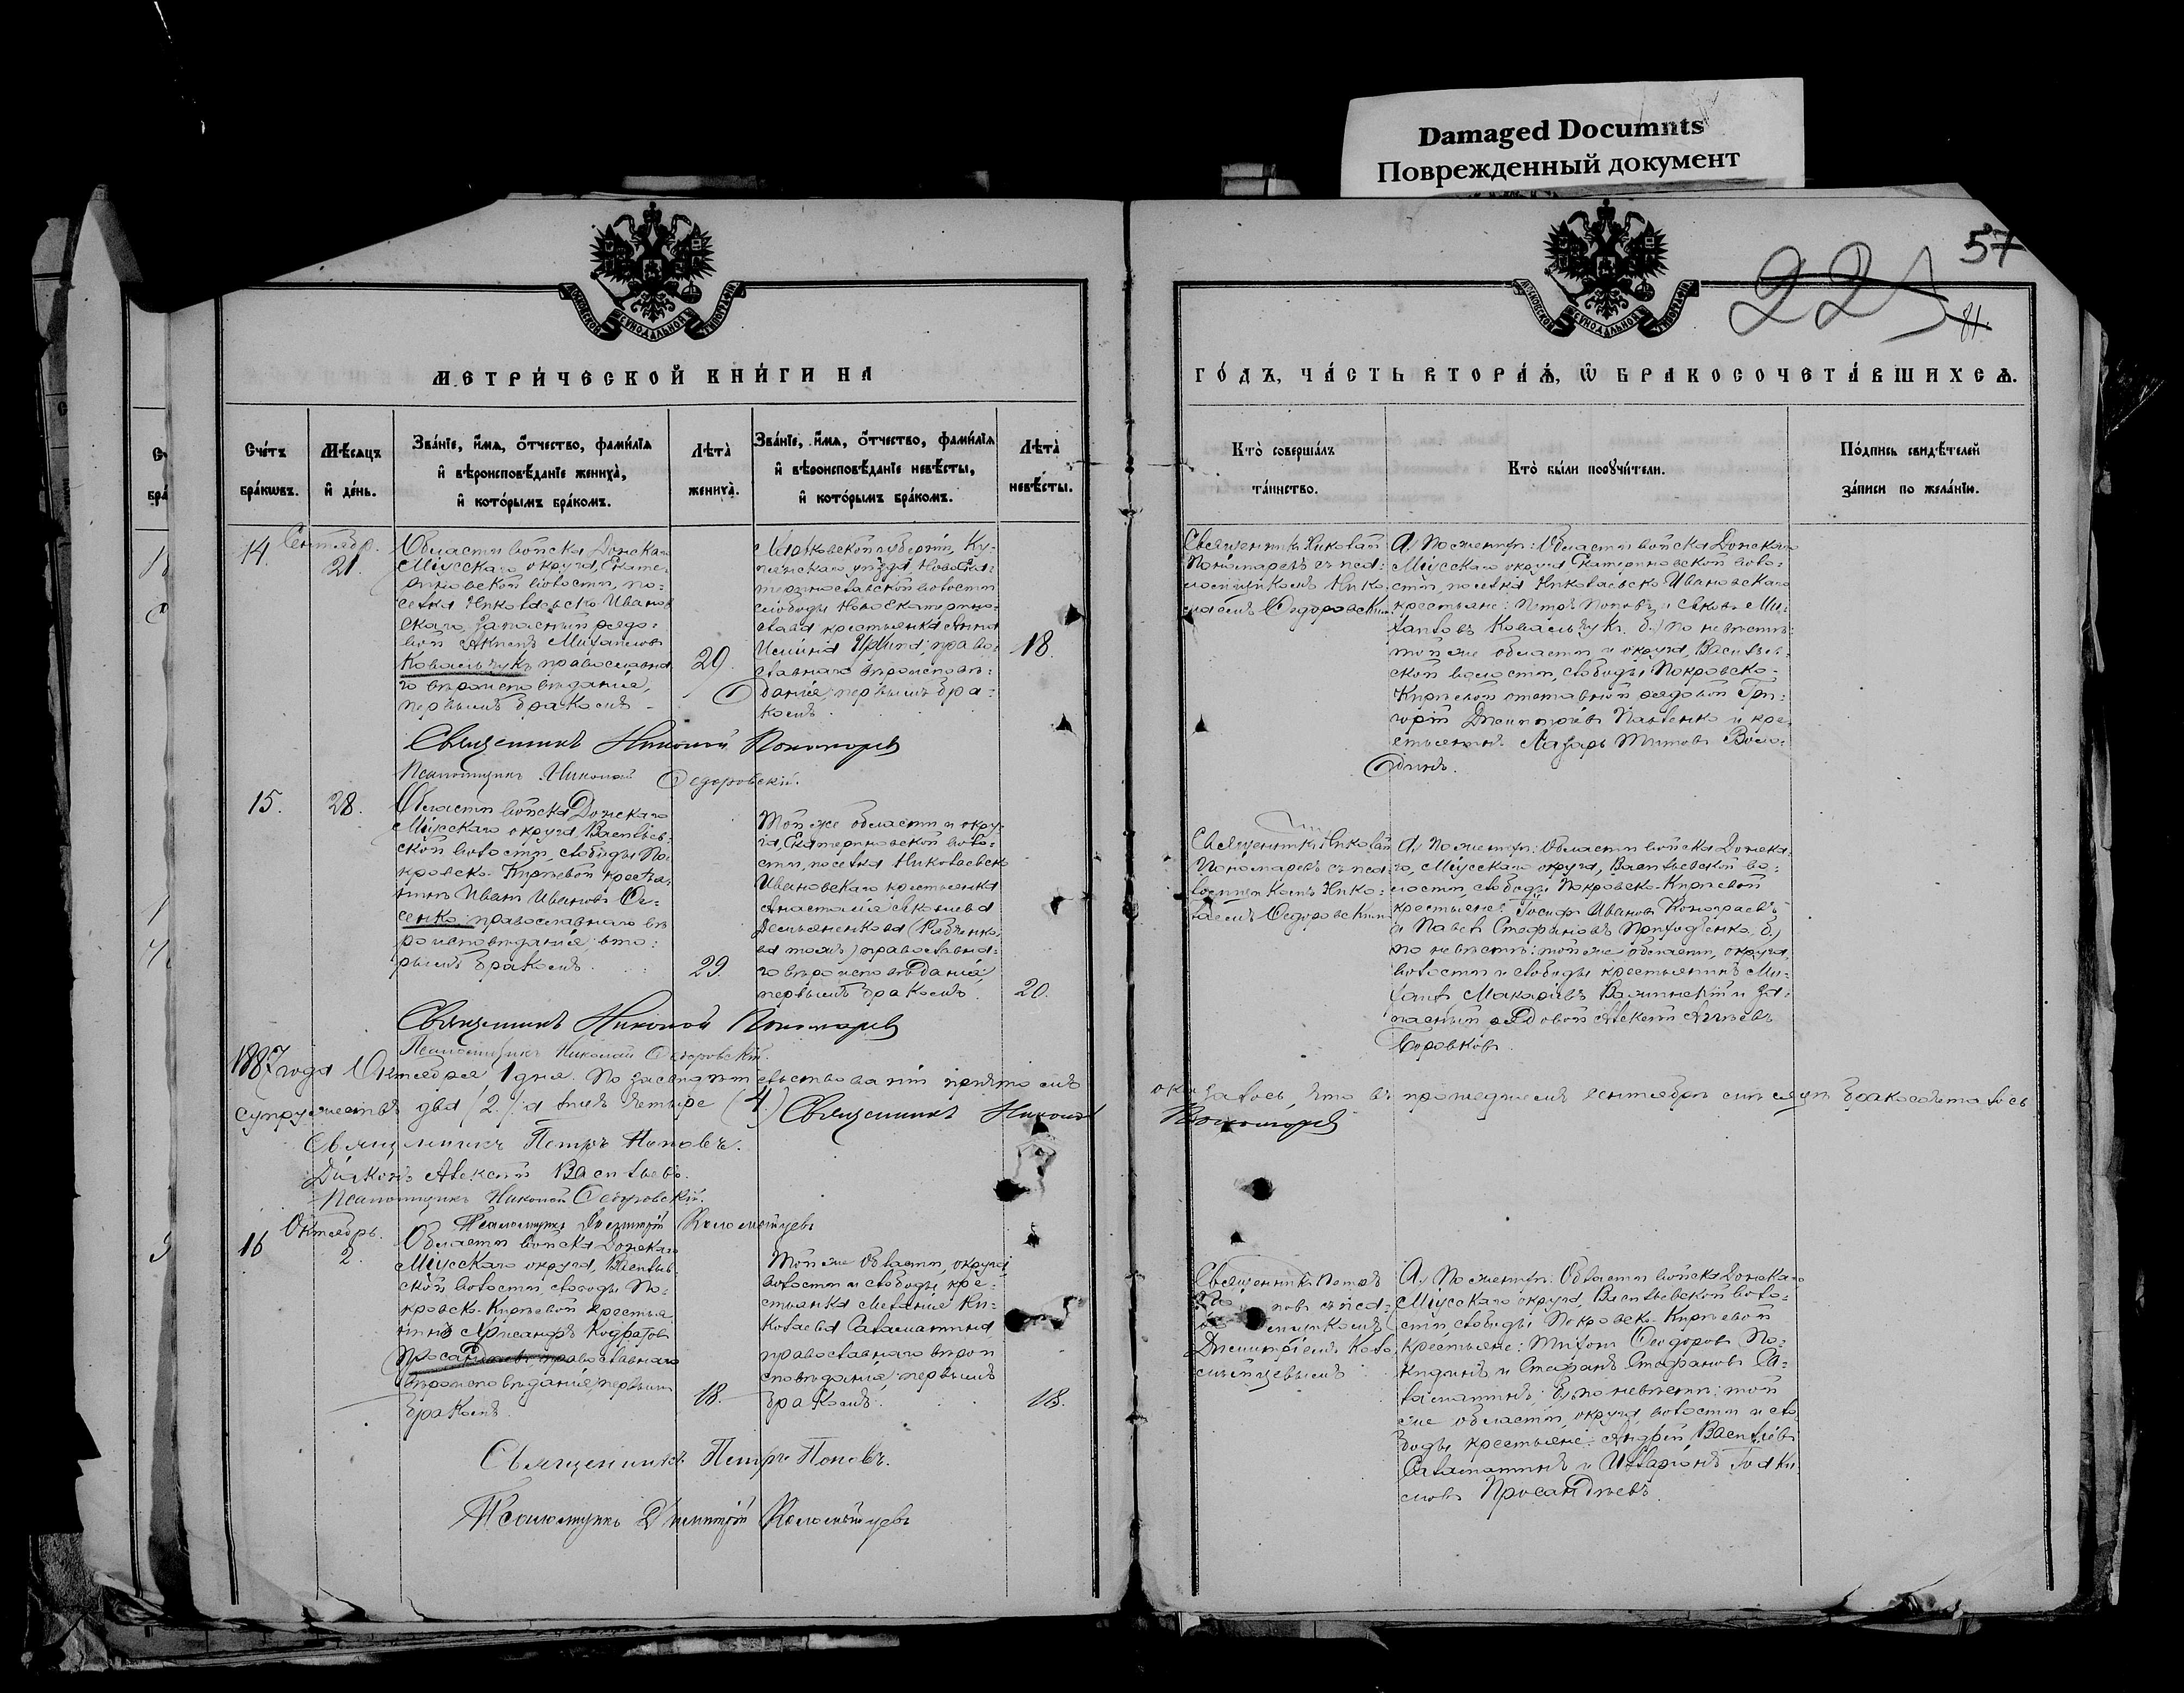 Damaged Documnts
Поврежденный документ
57
225
МЕТРИ́ЧЕСКОЙ КНИ́ГИ НА
ГО́ДЪ, ЧА́СТЬ ВТОРА́Ѧ, Ѡ БРАКОСОЧЕТА́ВШИХСѦ.
Сче́тъ
бра́кѡвъ.
Мѣ́сѧцъ
и҆ де́нь.
Зва́нїе, и҆́мѧ, ѻ҆́тчество, фами́лїѧ
и҆ вѣроисповѣ́данїе жениха̀,
и҆ кото́рымъ бра́комъ.
Лѣта̀
жениха̀.
Зва́нїе, и҆́мѧ, ѻ҆́тчество, фами́лїѧ
и҆ вѣроисповѣ́данїе невѣ́сты,
и҆ кото́рымъ бра́комъ.
Лѣта̀
невѣ́сты.
Кто̀ соверша́лъ
та́инство.
Кто̀ бы́ли порꙋчи́тели.
По́дпись свидѣ́телей
за́писи по жела́нїю.
14.
Сентябрь.
21.
Области войска Донскаго
Міусскаго округа, Екате-
риновской волости, по-
селка Николаевско-Иванов
скаго, запасный рядо-
вой Акимъ Михаиловъ
Ковальчукъ православна
го вѣроисповѣданія,
первымъ бракомъ
29.
Харьковской губерніи, Ку-
пянскаго уѣзда, Новоека-
теринославской волости
слободы Новоекатерино-
слава крестьянка Анна
православнаго вѣроисповѣ-
данія, первымъ бра-
комъ.
18.
Священникъ Николай
Пономаревъ съ псал-
мщикомъ Нико-
лаемъ Ѳедоровскимъ
А) По женихѣ: Области войска Донскаго
Міусскаго округа Екатериновской воло-
сти, поселка Николаевско-Ивановскаго
крестьяне: Петръ Поповъ и Яковъ Ми-
хаиловъ Ковальчукъ. б) по невѣстѣ:
той-же области и округа, Васильев-
ской волости, слободы Покровско-
Кирѣевой отставной рядовой Гри-
горій Дмитріевъ Павленко и кре-
стьянинъ Лазарь Титовъ Воло-
динъ.
Священникъ Николай Пономаревъ
Псаломщикъ Николай Ѳедоровскій.
15.
28.
Области войска Донскаго
Міусскаго округа, Васильев-
ской волости, слободы По-
кровско-Кирѣевой крестья-
нинъ Иванъ Ивановъ
православнаго вѣ-
роисповѣданія вто-
рымъ бракомъ.
29.
Той же области и окру-
га, Екатериновской воло-
сти, поселка Николаевско
Ивановскаго крестьянка
Анастасія Яковлева
Демьяненкова
православна-
го вѣроисповѣданія,
первымъ бракомъ.
20.
Священникъ Николай
Пономаревъ съ псал-
мщикомъ Нико-
лаемъ Ѳедоровскимъ
А) По женихѣ: Области войска Донска-
го, Міусскаго округа, Васильевской во-
лости, слободы Покровско-Кирѣевой
крестьяне: Іосифъ Ивановъ
и Павелъ Стефановъ Приходченко, б)
по невѣстѣ: той же области, округа,
волости и слободы крестьянинъ Ми-
хаилъ Макаріевъ и за-
пасный рядовой Алексій
Боровковъ.
Священникъ Николай Пономаревъ
Псаломщикъ Николай Ѳедоровскій.
1887 года Октября 1 дня. По засвидѣтельствованіи причтомъ оказалось, что въ прошедшемъ сентябрѣ сихъ бракосочеталось
супружествъ два (2.), а лицъ четыре (4.) Священникъ Николай Пономаревъ
Священникъ Петръ Поповъ.
Діаконъ Алексій Васильевъ.
Псаломщикъ Николай Ѳедоровскій.
Псаломщикъ Димитрій Коломійцевъ
16
Октябрь.
2.
Области войска Донскаго
Міусскаго округа, Василь-
ской волости, слободы По-
кровско-Кирѣевой крестья
нинъ Кодратовъ
Просандѣевъ православнаго
вѣроисповѣданія, первымъ
бракомъ.
18.
Той же области, округа
волости и слободы, кре-
стьянка Меланія Ни-
колаева Саламатина
православнаго вѣрои
сповѣданія, первымъ
бракомъ.
18.
Священникъ Петръ
Поповъ съ псал-
мщикомъ
Димитріемъ Коло-
мійцевымъ
А) По женихѣ: Области войска Донскаго
Міусскаго округа, Васильевской воло-
сти, слободы Покровско-Кирѣевой
крестьяне: Титъ Ѳеодоровъ По-
кидинъ и Стефанъ Стефановъ Са-
ламатинъ; б) по невѣстѣ: той
же области, округа, волости и сло-
боды крестьяне: Андрей Васильевъ
Саламатинъ и Иларіонъ
Просандѣевъ.
Священникъ Петръ Поповъ.
Псаломщикъ Димитрій Коломійцевъ